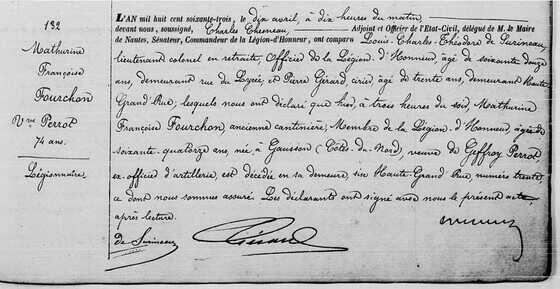 132
Mathurine
Françoise
Fourchon
Vve Perrot
74 ans.
Légionnaire.
L'AN mil huit cent soixante-trois, le dix avril, à dix heures du matin
devant nous, soussigné, Charles Chesneau, Adjoint et Officier de l'Etat-Civil, délégué de M. le Maire
de Nantes, Sénateur, Commandeur de la Légion-d'Honneur, ont comparu Louis Charles Théodore de Surineau,
lieutenant colonel en retraite, Officier de la Légion d'Honneur, âgé de soixante douze
ans, demeurant rue du Lycée, et Pierre Gérard cirier, âgé de trente ans, demeurant Haute
Grand'Rue, lesquels nous ont déclaré que hier, à trois heures du soir, Mathurine
Françoise Fourchon ancienne cantinière, Membre de la Légion d'Honneur, âgée de
soixante-quatorze ans, née à Gausson (Côtes-du-Nord), veuve de Geffroy Perrot
ex-officier d'artillerie, est décédée en sa demeure, sise Haute-Grand-Rue, numéro trente,
ce dont nous sommes assuré. Les déclarants ont signé avec nous le présent acte
après lecture.
de Surineau
Gérard